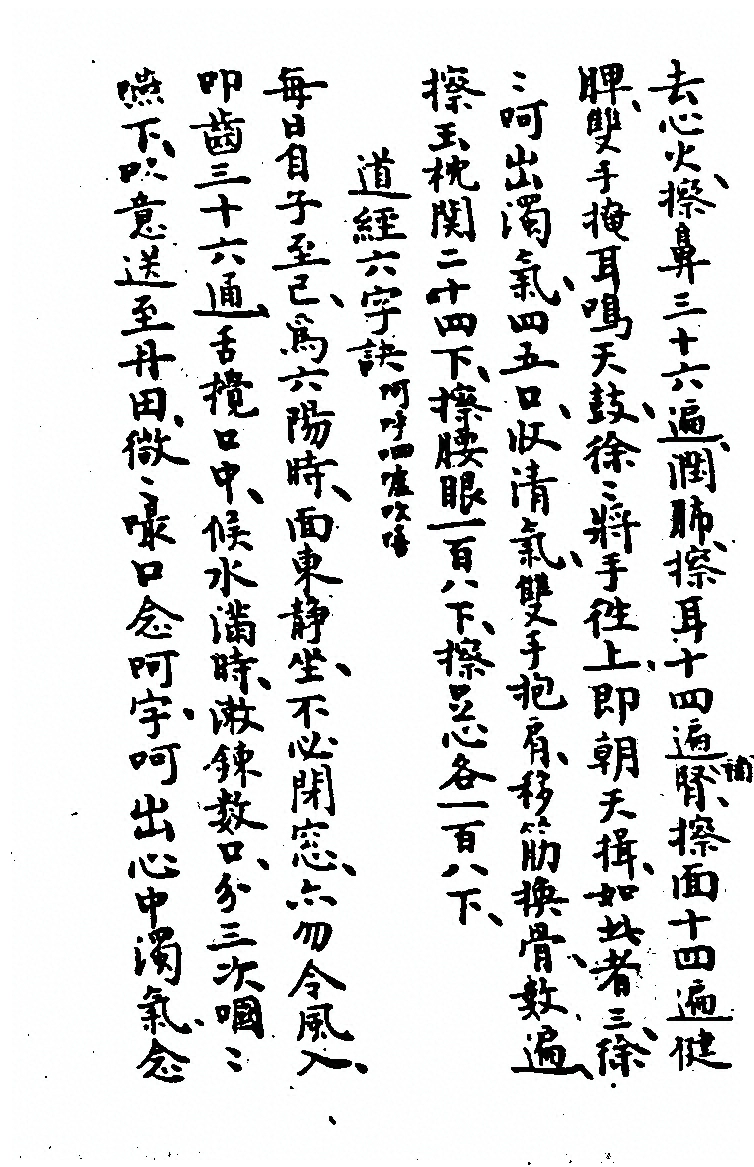 去心火、擦鼻三十六遍、潤肺、擦耳十四遍補腎、擦面十四遍健
脾、雙手掩耳鳴天鼓、徐〻將手徃上、即朝天揖、如此者三、徐
〻呵出濁氣、四五口、收清氣、雙手抱肩、移筋換骨、數遍、
擦玉枕関二十四下、擦腰眼一百八下、擦足心各一百八下、
道經六字訣 呵呼呬噓吹嘻
每日自子至巳、爲六陽時、面東静坐、不必閉窓、亦勿令風入、
叩齒三十六通、舌攪口中、候水滿時、漱鍊數口、分三次嘓〻
嚥下、以意送至丹田、微〻嘬口念呵字、呵出心中濁氣、念